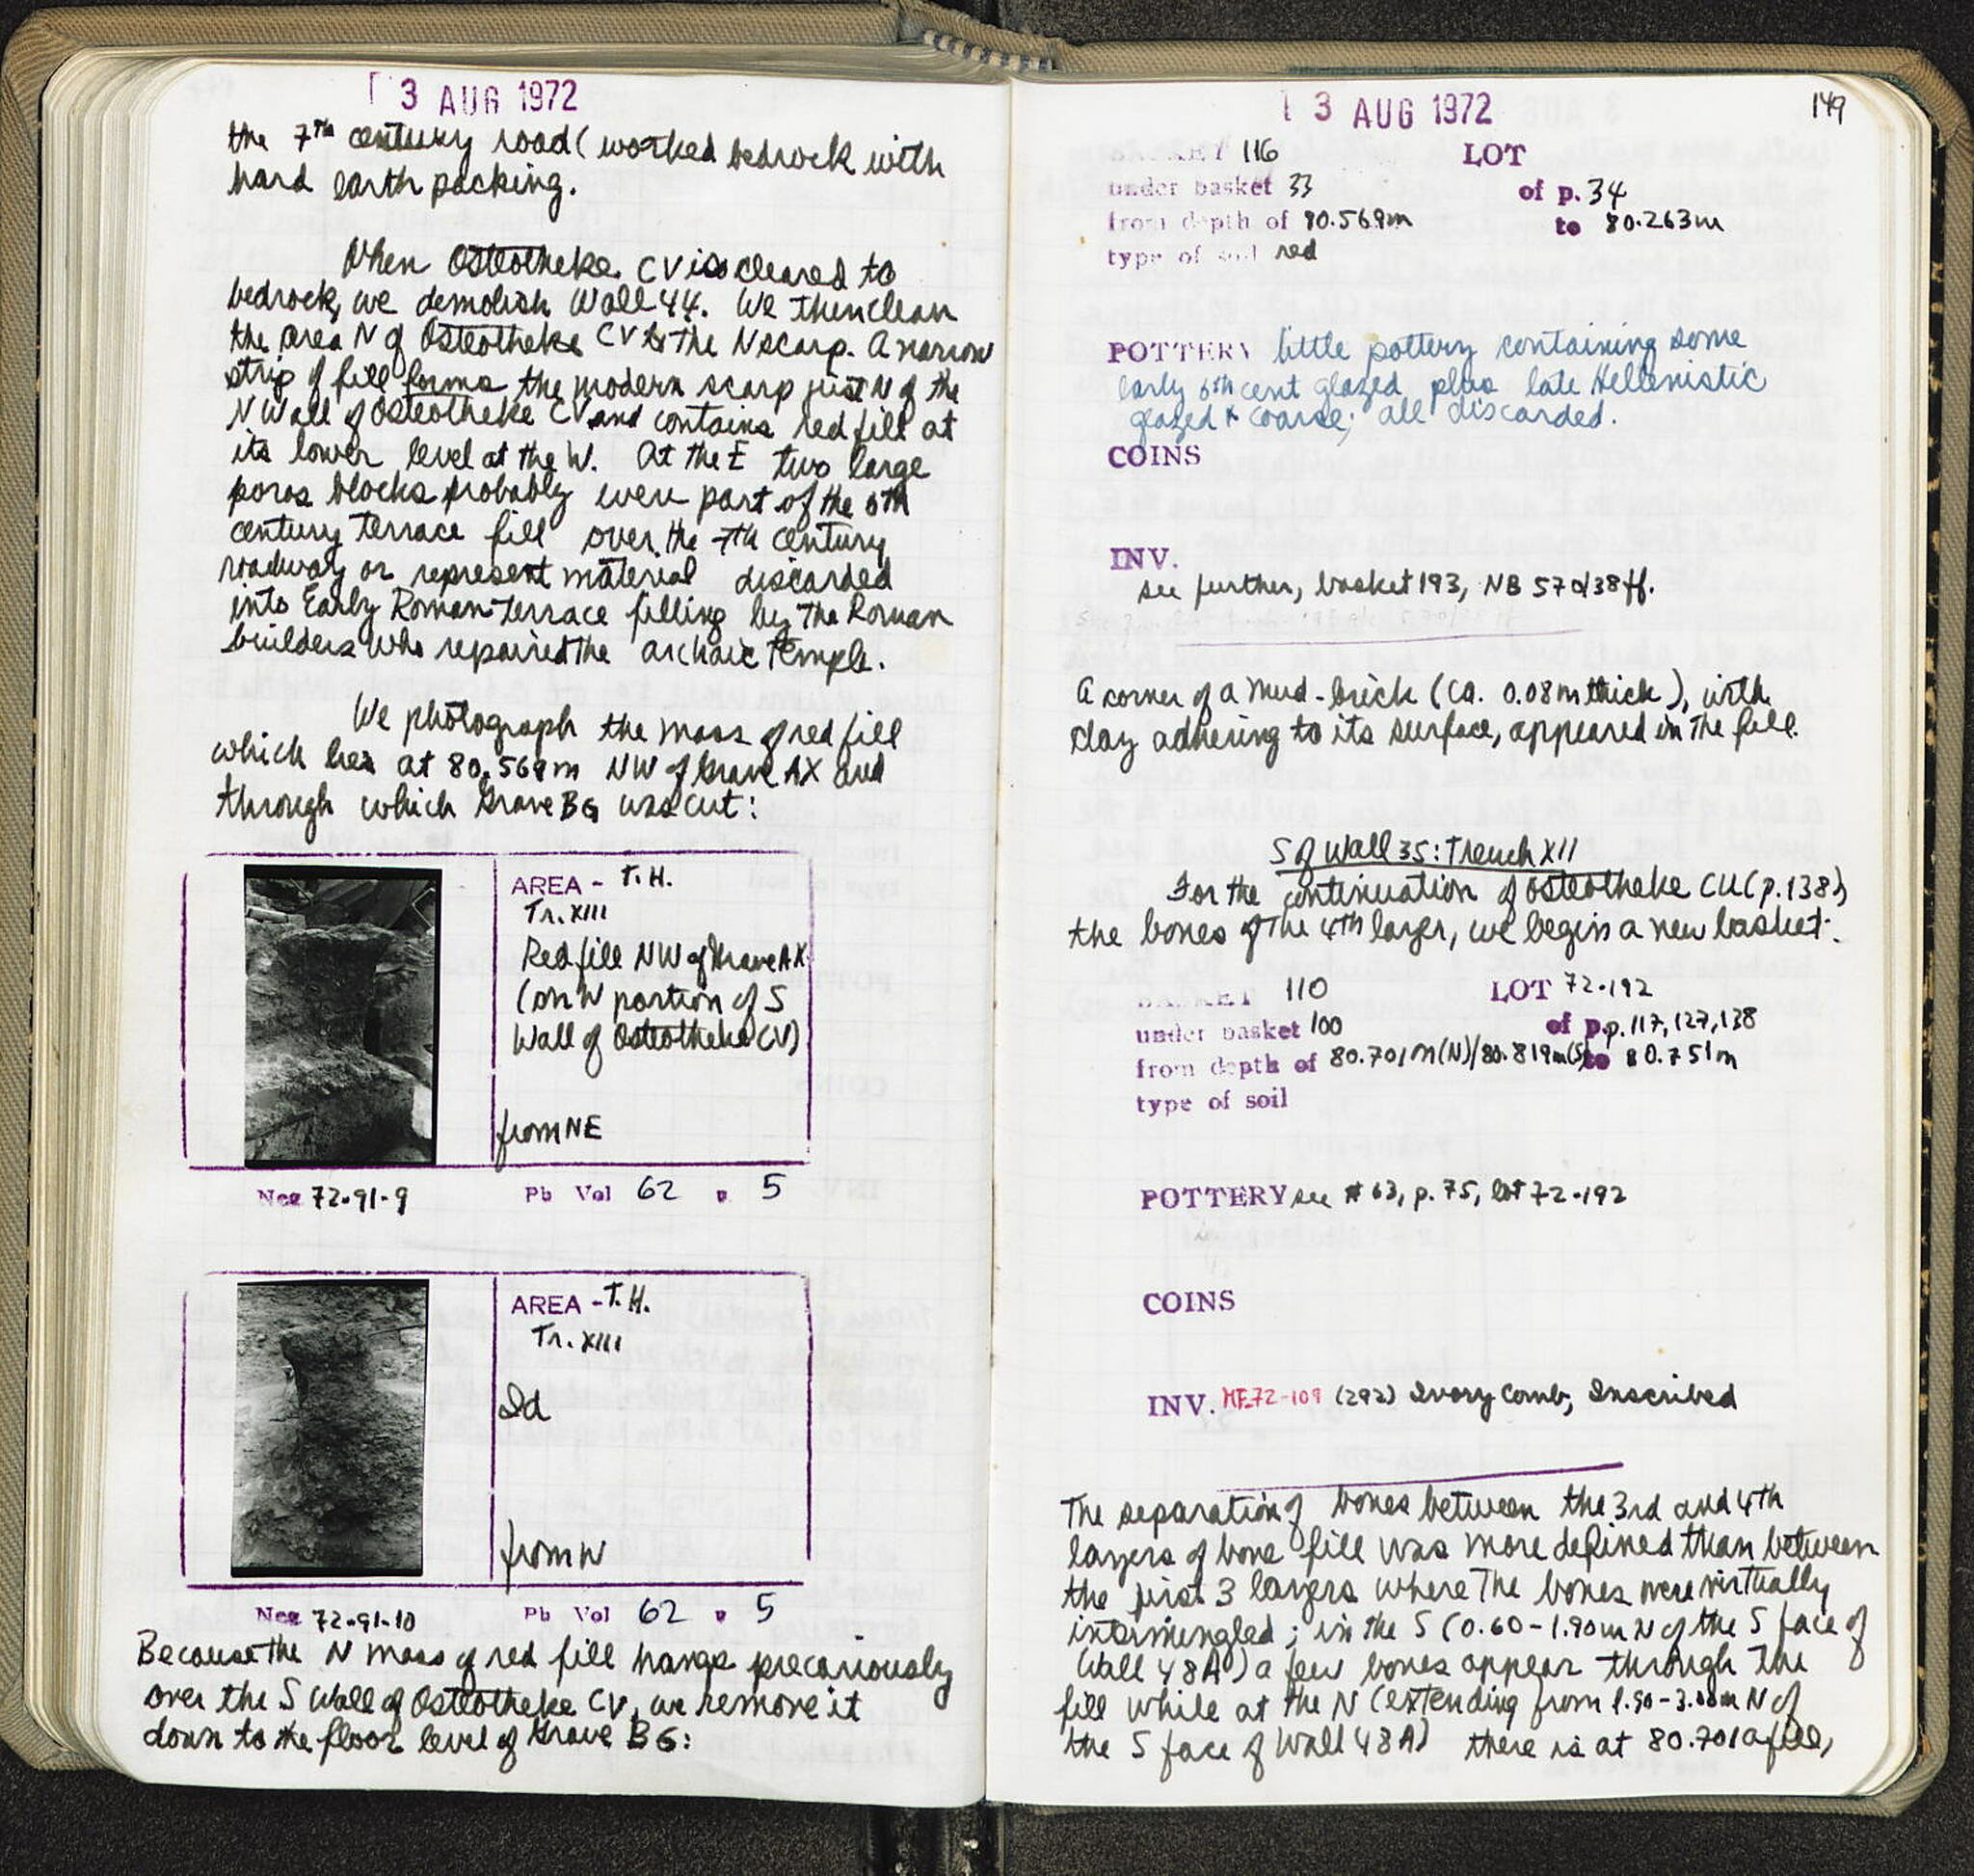 3 AUG 1972
the 7th century road (worked bedrock with
hard earth packing.
When Osteotheke CV is cleared to
bedrock, we demolish Wall 44. We then clean
the area N of Osteotheke CV to the N scarp. A narrow
strip of fill forms the modern scarp just N of the
N Wall of Osteotheke CV and contains red fill at
its lower level at the W. At the E two large
poros blocks probably were part of the 6th
century terrace fill over the 7th century
roadway or represent material discarded
into Early Roman terrace filling by the Roman
builders who repaired the archaic temple.
We photograph the mass of red fill
which lies at 80.569m NW of Grave AX and
through which Grave BG was cut:
AREA - T.H.
Tr. XIII
Red fill NW of Grave AX
(on W portion of S
Wall of Osteotheke CV)
from NE
Neg 72-91-9 Pb Vol 62 p 5
AREA - T.H.
Tr. XIII
Id
from W
Neg 72-91-10 Pb Vol 62 p 5
Because the N mass of red fill hangs precariously
over the S Wall of Osteotheke CV, we remove it
down to the floor level of Grave BG:
3 AUG 1972
149
BASKET 116 LOT
under basket 33 of p. 34
from depth of 80.569m to 80.263m
type of soil red
POTTERY little pottery containing some
early 6th cent glazed plus late Hellenistic
glazed & coarse; all discarded.
COINS
INV.
see further, basket 193, NB 570/38ff.
A corner of a mud-brick (ca. 0.08m thick), with
clay adhering to its surface, appeared in the fill.
S of Wall 35: Trench XII
For the continuation of Osteotheke CU (p.138)
the bones of the 4th layer, we begin a new basket.
BASKET 110 LOT 72-192
under basket 100 of p.p. 117, 127, 138
from depth of 80.701m(N)/80.819m(S) to 80.751m
type of soil
POTTERY see #63, p. 75, lot 72-192
COINS
INV. MF72-109 (292) Ivory Comb, Inscribed
The separation of bones between the 3rd and 4th
layers of bone fill was more defined than between
the first 3 layers where the bones were virtually
intermingled; in the S (0.60-1.90m N of the S face of
Wall 48A) a few bones appear through the
fill while at the N (extending from 1.90-3.00m N of
the S face of Wall 48A) there is at 80.701 a fill,